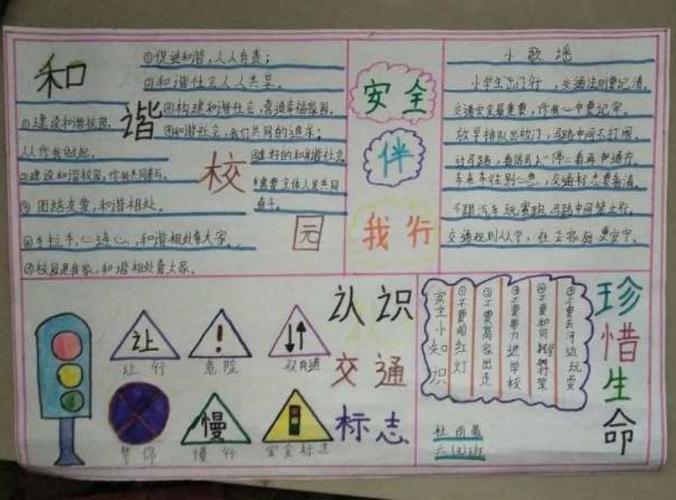 和谐校园
①促进和谐，人人有责；
②和谐社会人人共享。
③构建和谐社会，喜迎幸福家园。
④和谐社会，我们共同的追求；
⑤美好的和谐社会
需要全体人民共同
①建设和谐校园，
从你我做起。
②建设和谐校园，你我共同参与。
③团结友爱，和谐相处。
④手拉手，心连心，和谐相处靠大家。
⑤校园是我家，和谐相处靠大家。
安全
伴
我行
小歌谣
小学生出门行，交通法则要记清。
交通安全最重要，你我心中要记牢。
放学排队出校门，马路中间不打闹。
一停二看再通行。
来来车往别心急，交通标志要看清。
不跟汽车玩赛跑，马路中间禁止行。
交通规则从守，社会家庭更安宁。
让
让行
!
危险
双向通
禁停
慢
慢行
安全标志
认识
交通
标志
安全小知识
①不要闯红灯
②不要离家出走
③不要带刀进学校
④不要和同学打架
⑤不要去河边玩耍
珍惜生命
六(3)班